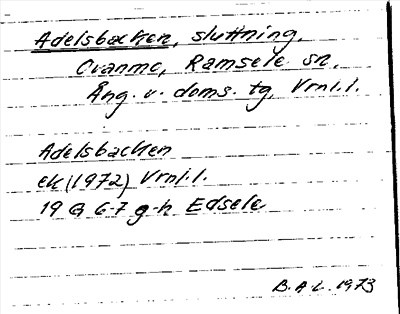 Adelsbacken, sluttning,
Ovanmo, Ramsele sn,
Ång. v. doms. tg, Vrnl.l.
Adelsbacken
ek (1972) Vrnl.l.
19 G 6-7 g-h Edsele
B.A.L. 1973